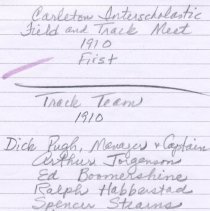 Carleton Interscholastic
Field and Track Meet
1910
First
Track Team
1910
Dick Pugh, Manager & Captain
Arthur Jorgenson
Ed Boomershine
Ralph Habberstad
Spencer Stearns